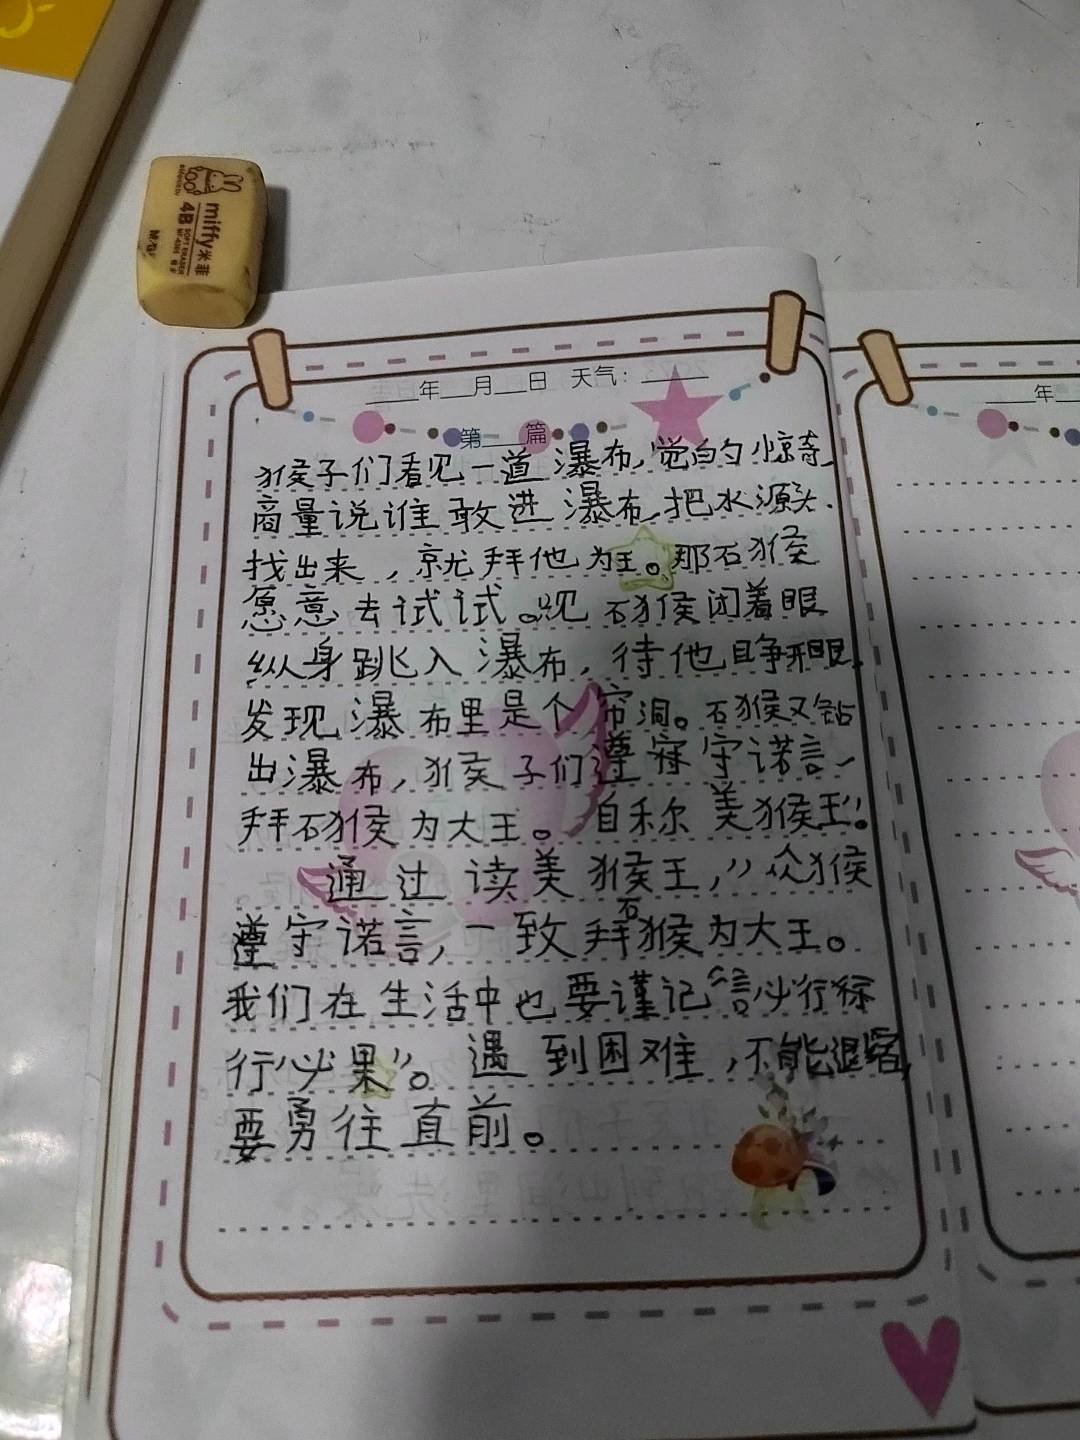 miffy米菲
4B
SOFT ERASER
年 月 日 天气：
第 篇
年
猴子们看见一道瀑布,觉的勺惊奇,
商量说谁敢进瀑布,把水源头
找出来，就拜他为王。那石猴
愿意去试试。只见石猴闭着眼
纵身跳入瀑布，待他睁开眼,
发现瀑布里是个帘洞。石猴又钻
出瀑布，猴子们遵守守诺言
拜石猴为大王。自称美猴王”。
通过读美猴王，”众猴
遵守诺言，一致拜石猴为大王。
我们在生活中也要谨记“言必行
行必果”。遇到困难，不能退缩,
要勇往直前。